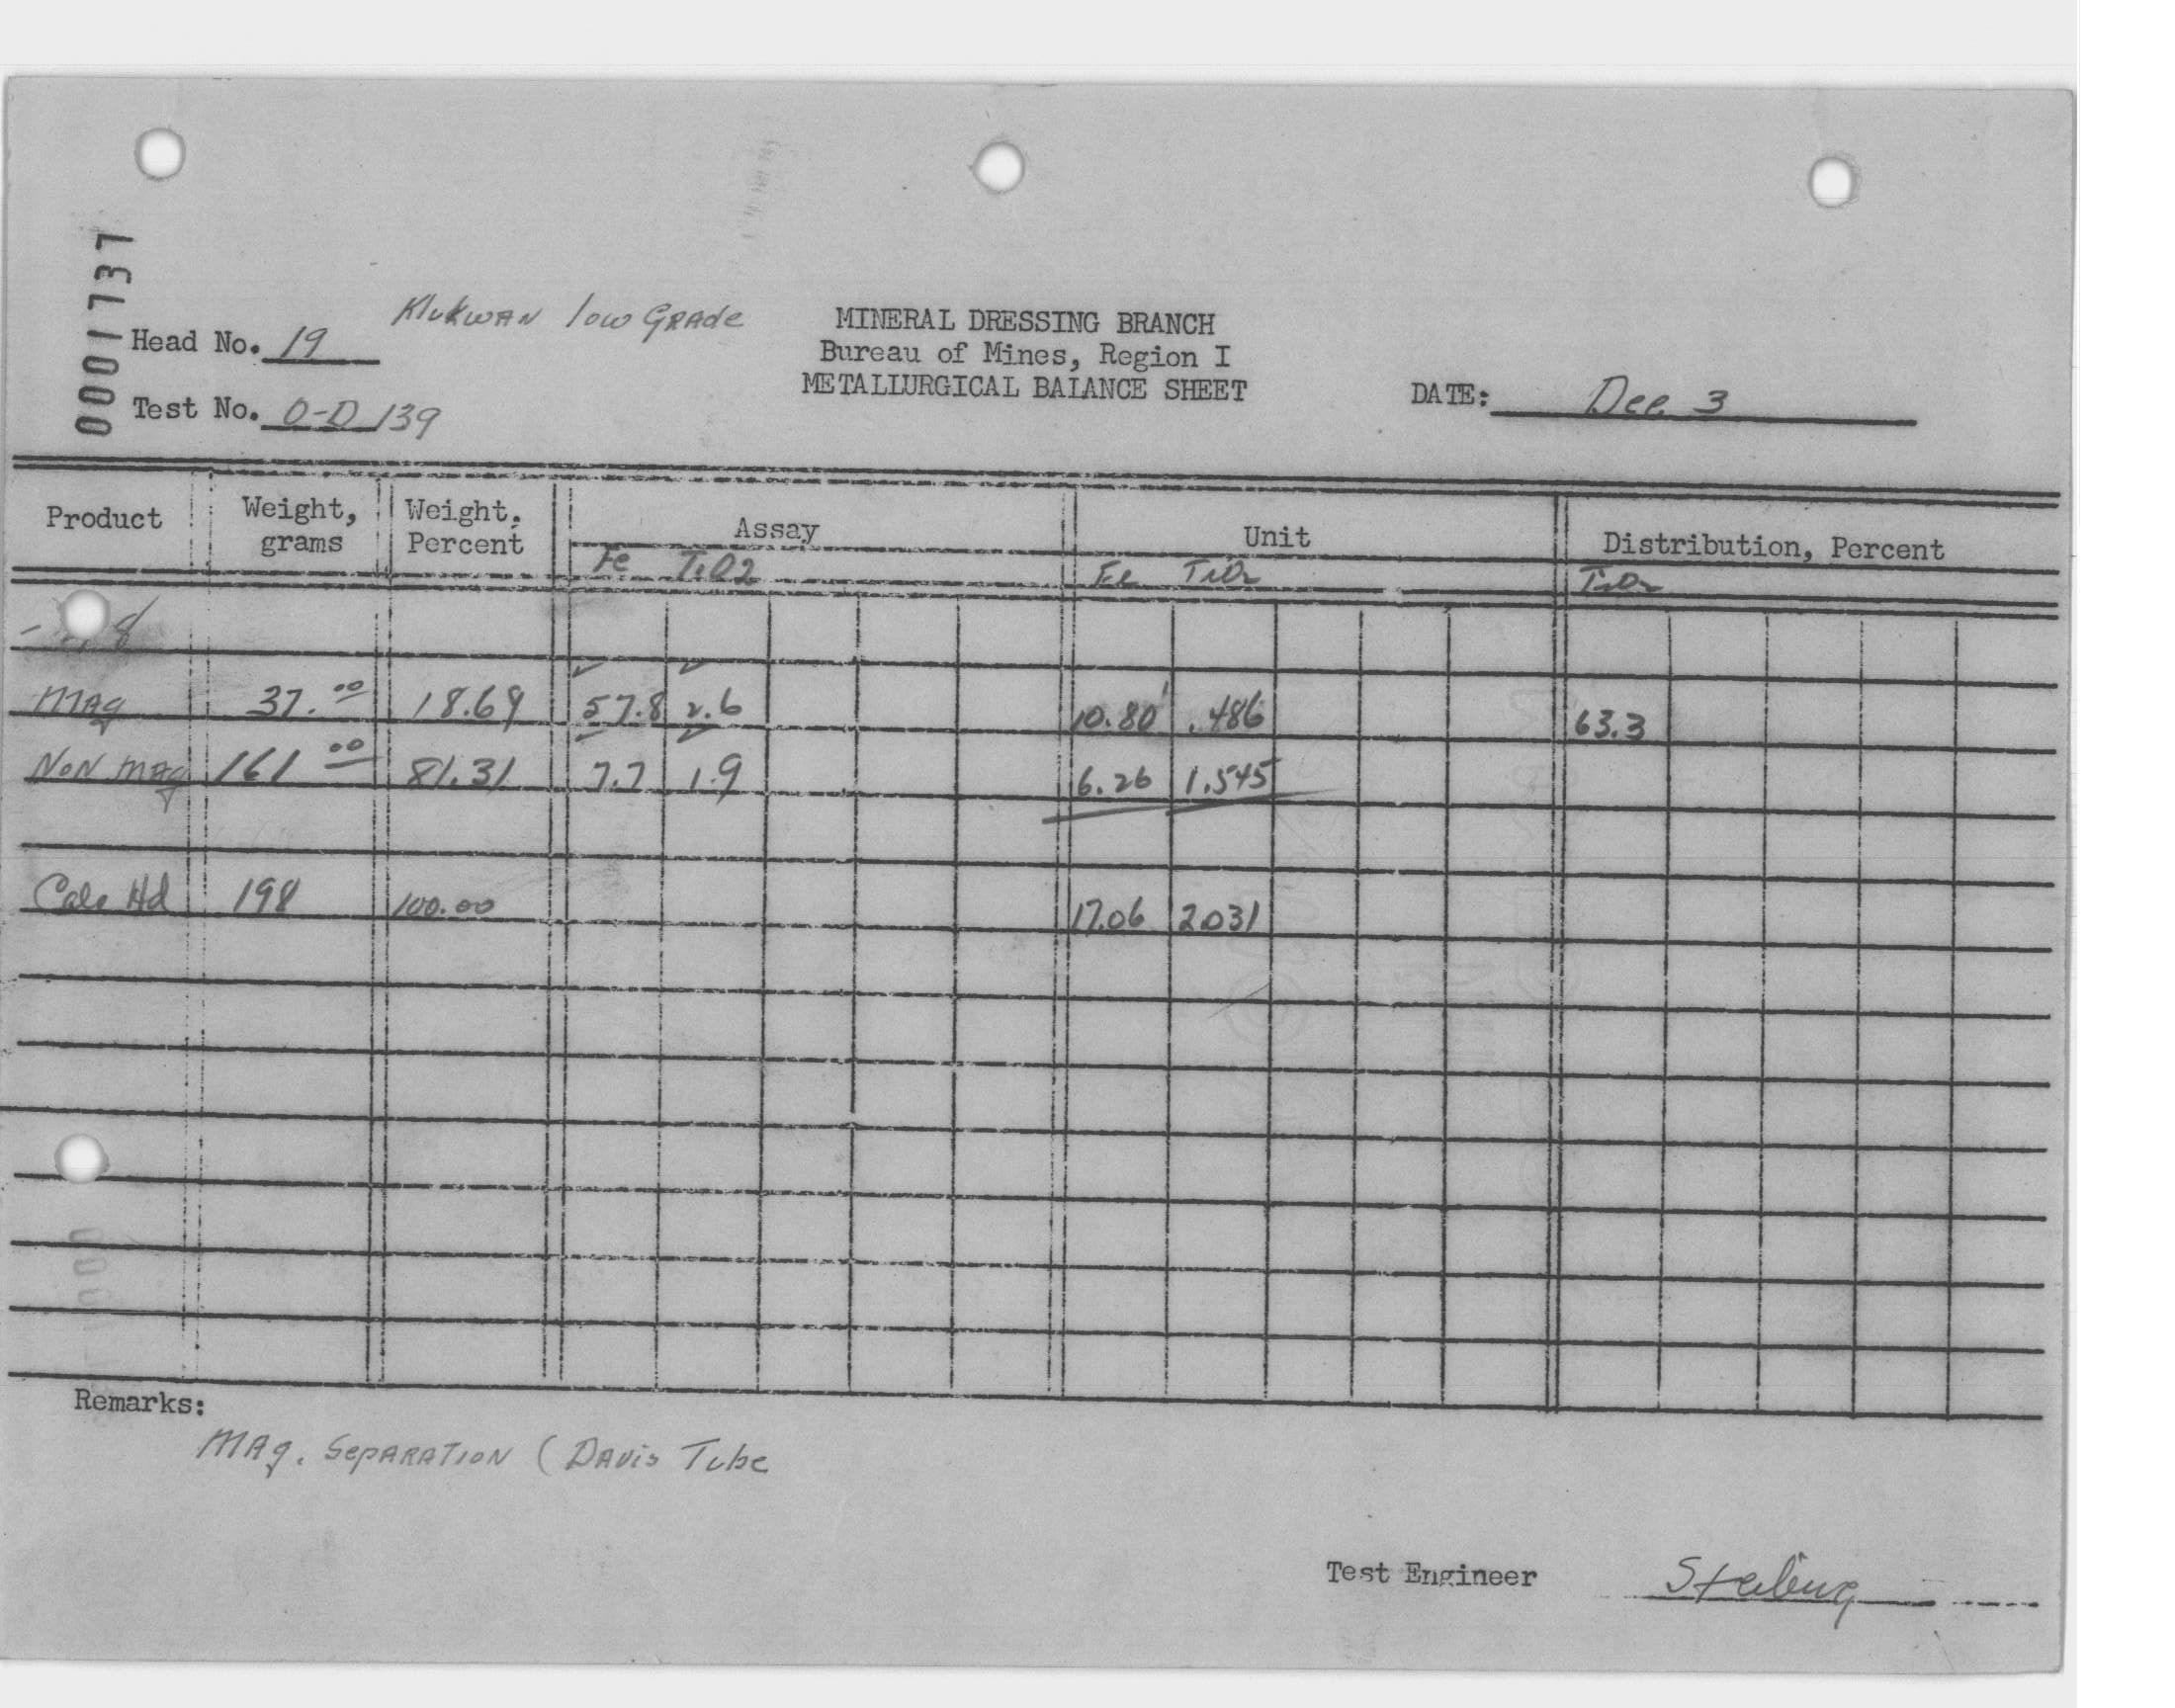 0001737
Klukwan low Grade
MINERAL DRESSING BRANCH
Head No. 19
Bureau of Mines, Region I
METALLURGICAL BALANCE SHEET
DATE: Dec. 3
Test No. O-D 139
Product Weight, grams Weight, Percent Assay Unit Distribution, Percent
Fe TiO2 Fe TiO2 TiO2
Mag 37.00 18.69 57.8 2.6 10.80 .486 63.3
Non mag 161 00 81.31 7.7 1.9 6.26 1.545
Calc Hd 198 100.00 17.06 2.031
Remarks:
Mag. Separation (Davis Tube
Test Engineer